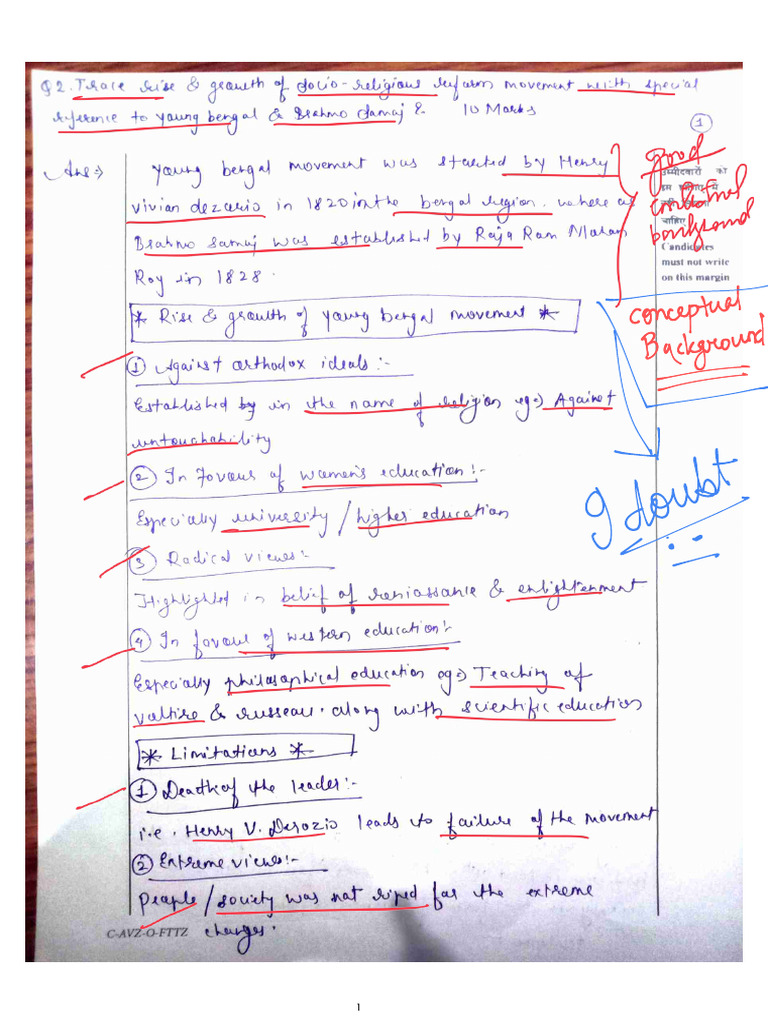 Q2. Trace rise & growth of socio-religious reform movement with special
reference to young bengal & Brahmo Samaj ? 10 Marks
1
Ans:→ Young bengal movement was started by Henry
vivian dezario in 1820 in the bengal region. where as
Brahmo Samaj was established by Raja Ram Mohan
Roy in 1828.
good
contextual
background
उम्मीदवारों को
इस
चाहिए
Candidates
must not write
on this margin
* Rise & growth of young bengal movement *
conceptual
Background
① Against orthodox ideals:-
Established by in the name of religion eg:→ Against
untouchability
② In favour of women's education:-
Especially university / higher education
9 doubt
③ Radical views:-
Highlighted in belief of reniassance & enlightenment
④ In favour of western education:-
Especially philosophical education eg:→ Teaching of
valtire & russeau. along with scientific education
* Limitations *
① Death of the leader:-
i.e. Henry V. Derozio leads to failure of the movement
② Extreme views:-
People / society was not riped for the extreme
changes.
C-AVZ-O-FTTZ
1